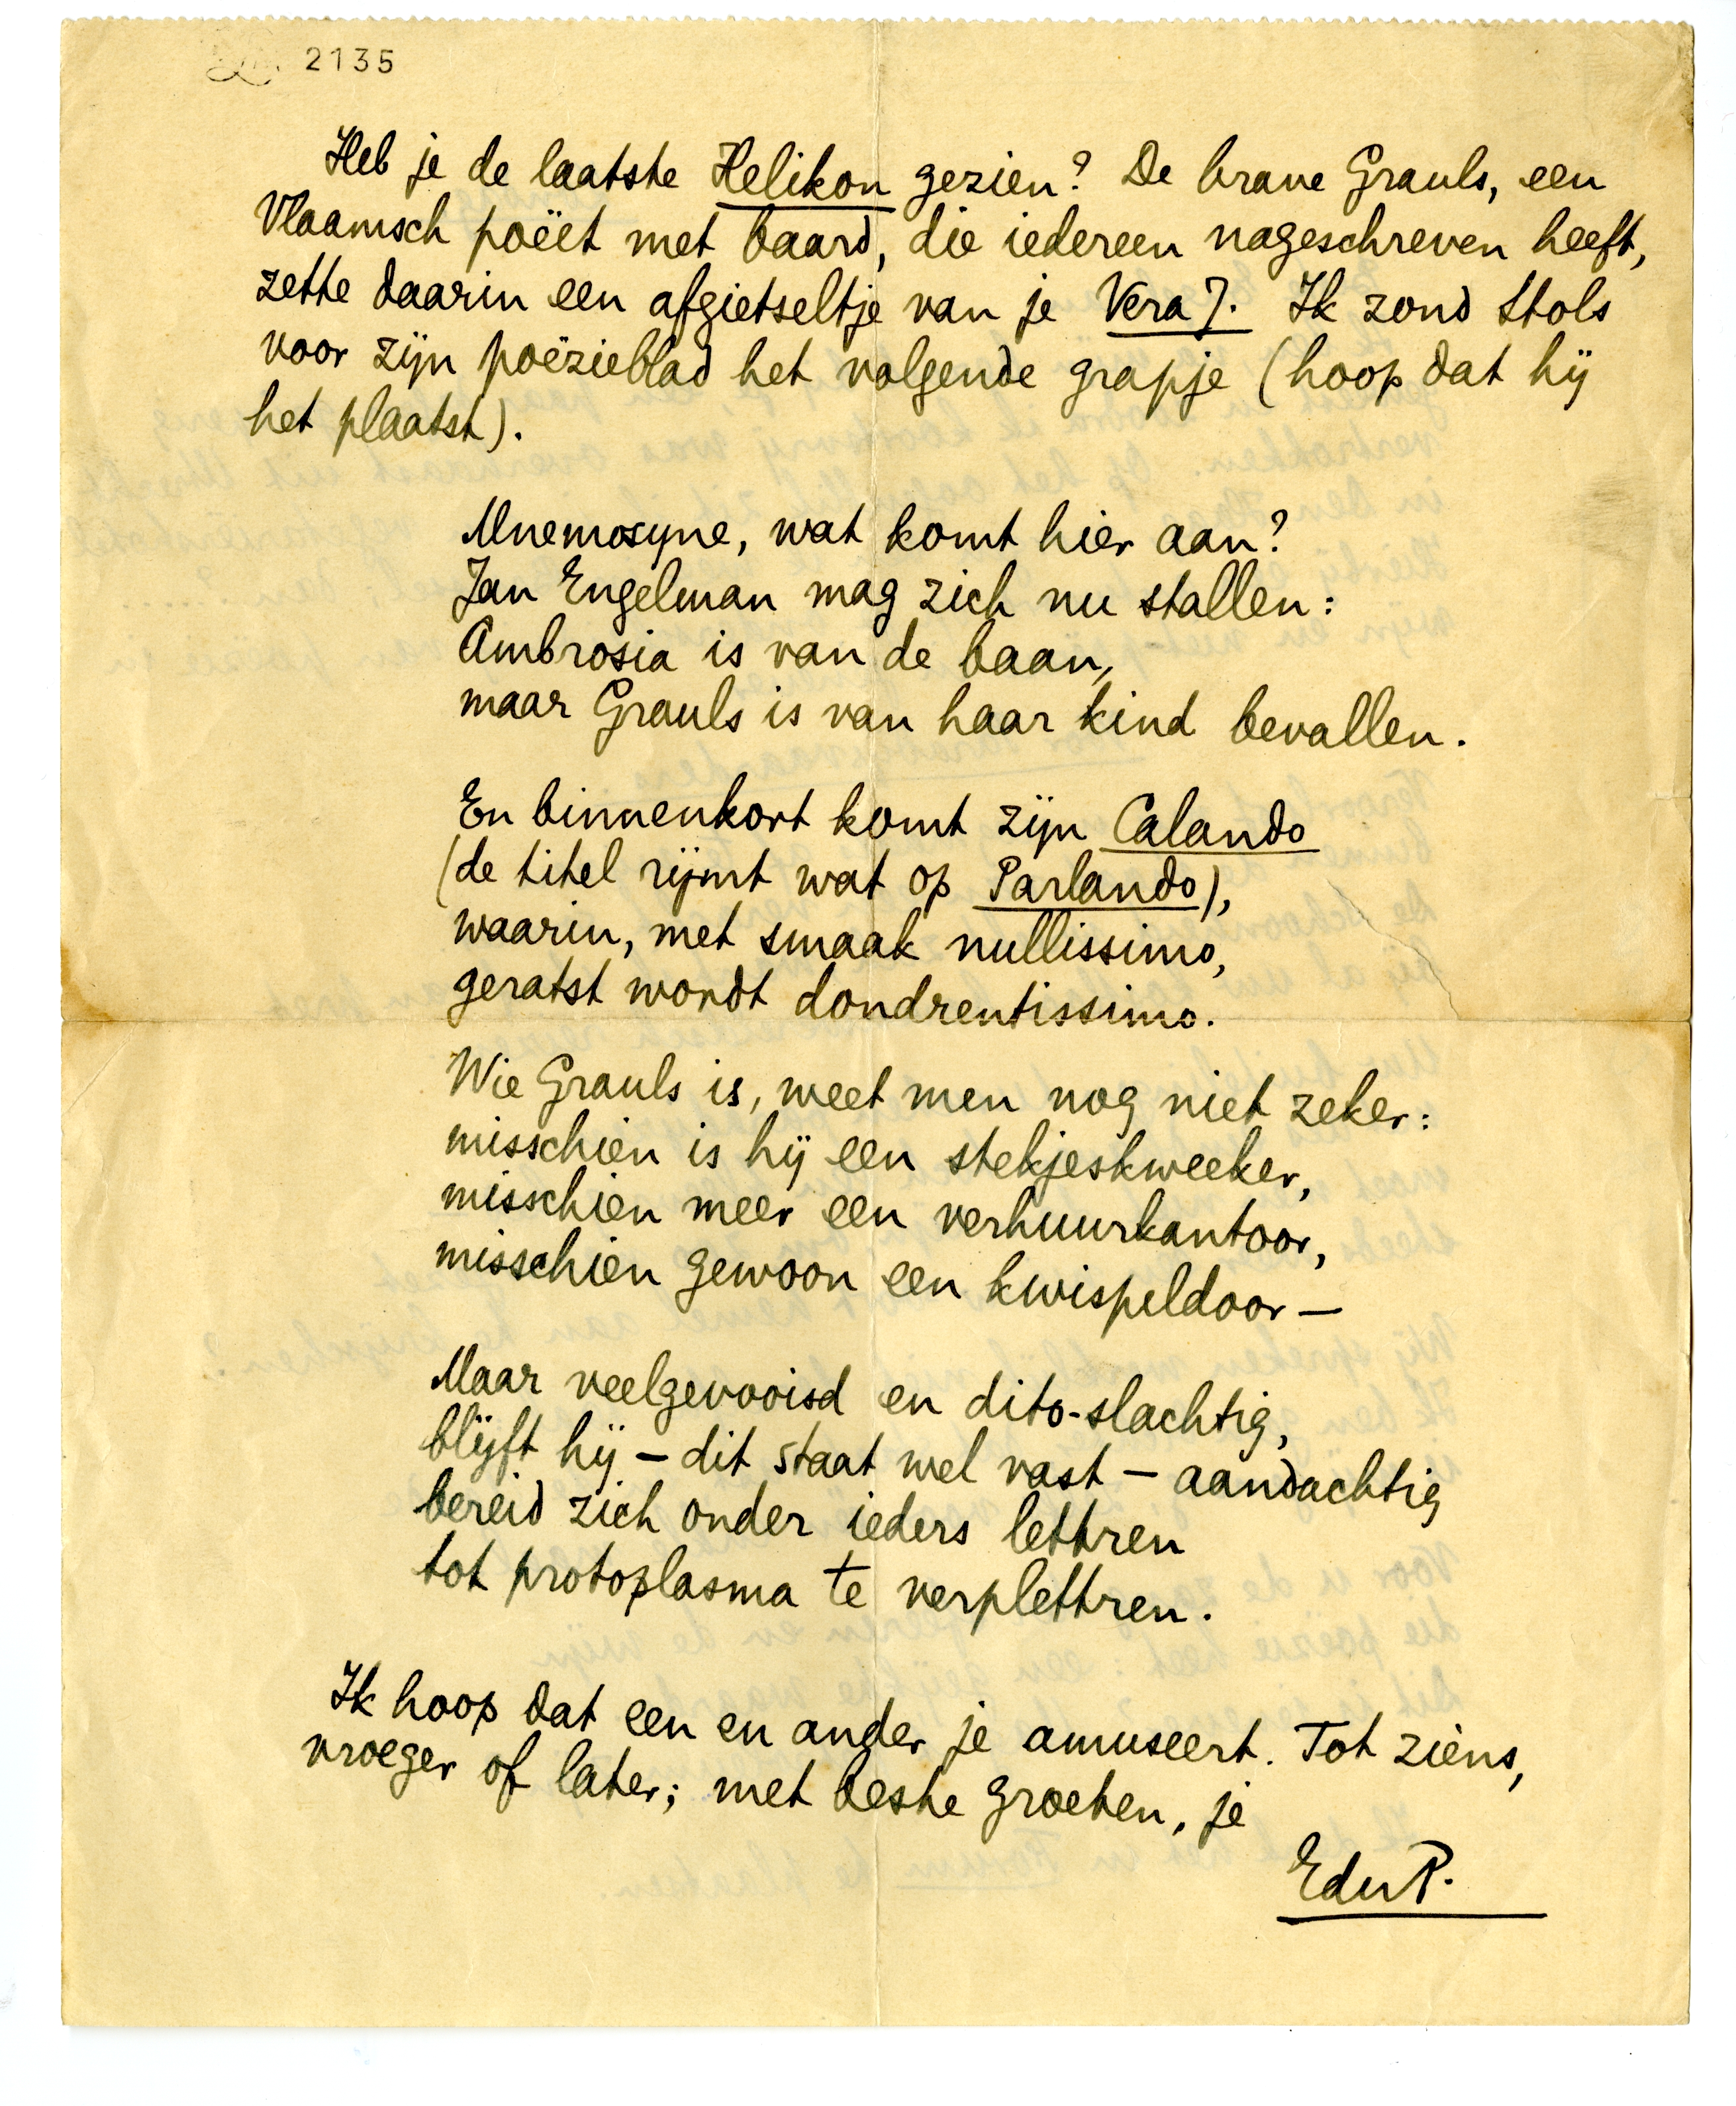 2135
Heb je de laatste Helikon gezien? De brave Grauls, een
Vlaamsch poëet met baard, die iedereen nageschreven heeft,
zette daarin een afgietseltje van je Vera J. Ik zond Stols
voor zijn poëzieblad het volgende grapje (hoop dat hij
het plaatst).
Mnemosyne, wat komt hier aan?
Jan Engelman mag zich nu stallen:
Ambrosia is van de baan,
maar Grauls is van haar kind bevallen.
En binnenkort komt zijn Calando
(de titel rijmt wat op Parlando),
waarin, met smaak nullissimo,
geratst wordt dondrentissimo.
Wie Grauls is, weet men nog niet zeker:
misschien is hij een stekjeskweeker,
misschien meer een verhuurkantoor,
misschien gewoon een kwispeldoor —
Maar veelgevooisd en dito-slachtig,
blijft hij — dit staat wel vast — aandachtig
bereid zich onder ieders lettren
tot protoplasma te verplettren.
Ik hoop dat een en ander je amuseert. Tot ziens,
vroeger of later; met beste groeten, je
EduP.